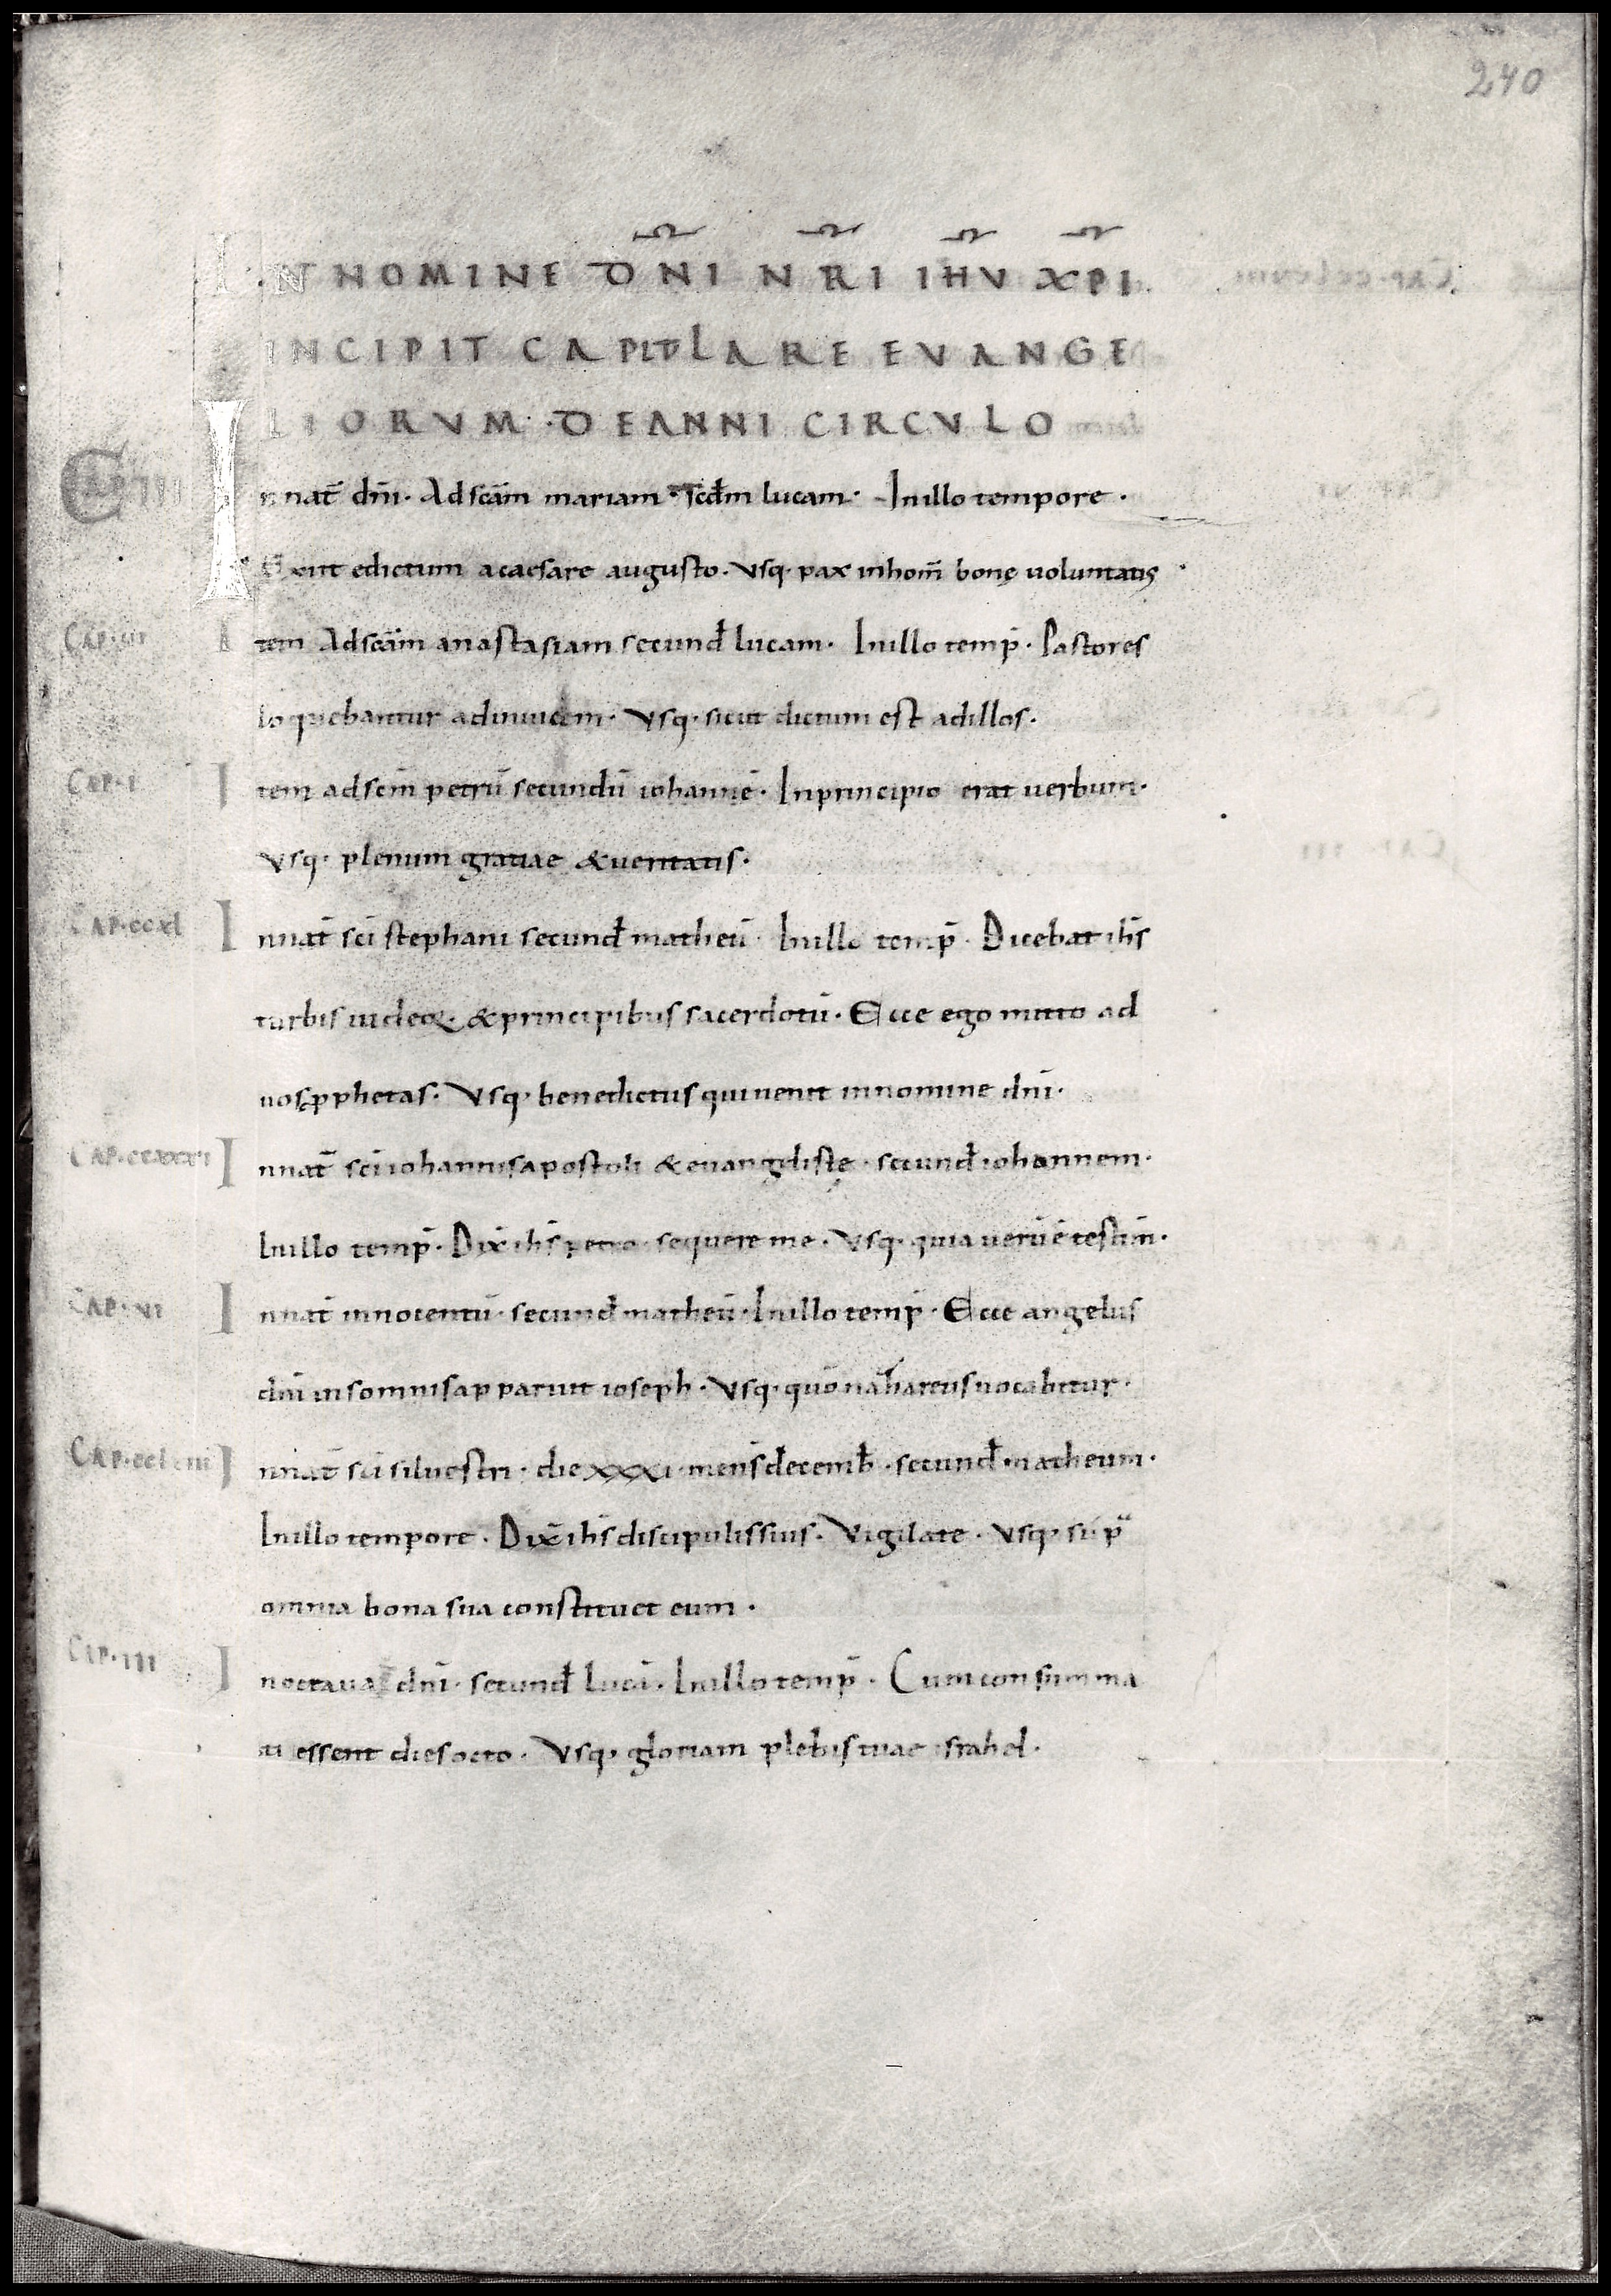 240
IN NOMINE DNI NRI IHV XPI
INCIPIT CAPITVLARE EVANGE
LIORVM · DE ANNI CIRCVLO
CAP III In nat̄ dn̄i · Ad scām mariam · scd̄m lucam · In illo tempore ·
Exiit edictum a caesare augusto · Vsq· pax in hom̄ bonę voluntatis
CAP· Item Ad scām anastasiam secund̄ lucam · In illo temp̄ · Pastores
loquebantur adinuicem · Vsq· sicut dictum est ad illos ·
CAP·I Item ad scm̄ petrū secundū iohannē · In principio erat uerbum ·
Vsq· plenum gratiae & ueritatis ·
CAP·ccxl In nat̄ sci stephani secund̄ matheū · In illo temp̄ · Dicebat ihs̄
turbis iudeoꝝ · & principibus sacerdotū · Ecce ego mitto ad
uos ꝓphetas · Vsq· benedictus qui uenit in nomine dn̄i ·
In nat̄ sci iohannis apostoli & euangelistę · secund̄ iohannem ·
In illo temp̄ · Dix̄ ihs̄ petro · sequere me · Vsq· quia uerū ē testim̄ ·
CAP·VI In nat̄ innocentū · secund̄ matheū · In illo temp̄ · Ecce angelus
dn̄i in somnis apparuit ioseph · Vsq· quō nazareus uocabitur ·
In nat̄ sci siluestri · die xxxi · mens̄ decemb̄ · secund̄ matheum ·
In illo tempore · Dix̄ ihs̄ discipulis suis · Vigilate · Vsq· sup̄
omnia bona sua constituet eum ·
CAP·III In octauas dn̄i · secund̄ lucā · In illo temp̄ · Cum consumma
ti essent dies octo · Vsq· gloriam plebis tuae israhel ·